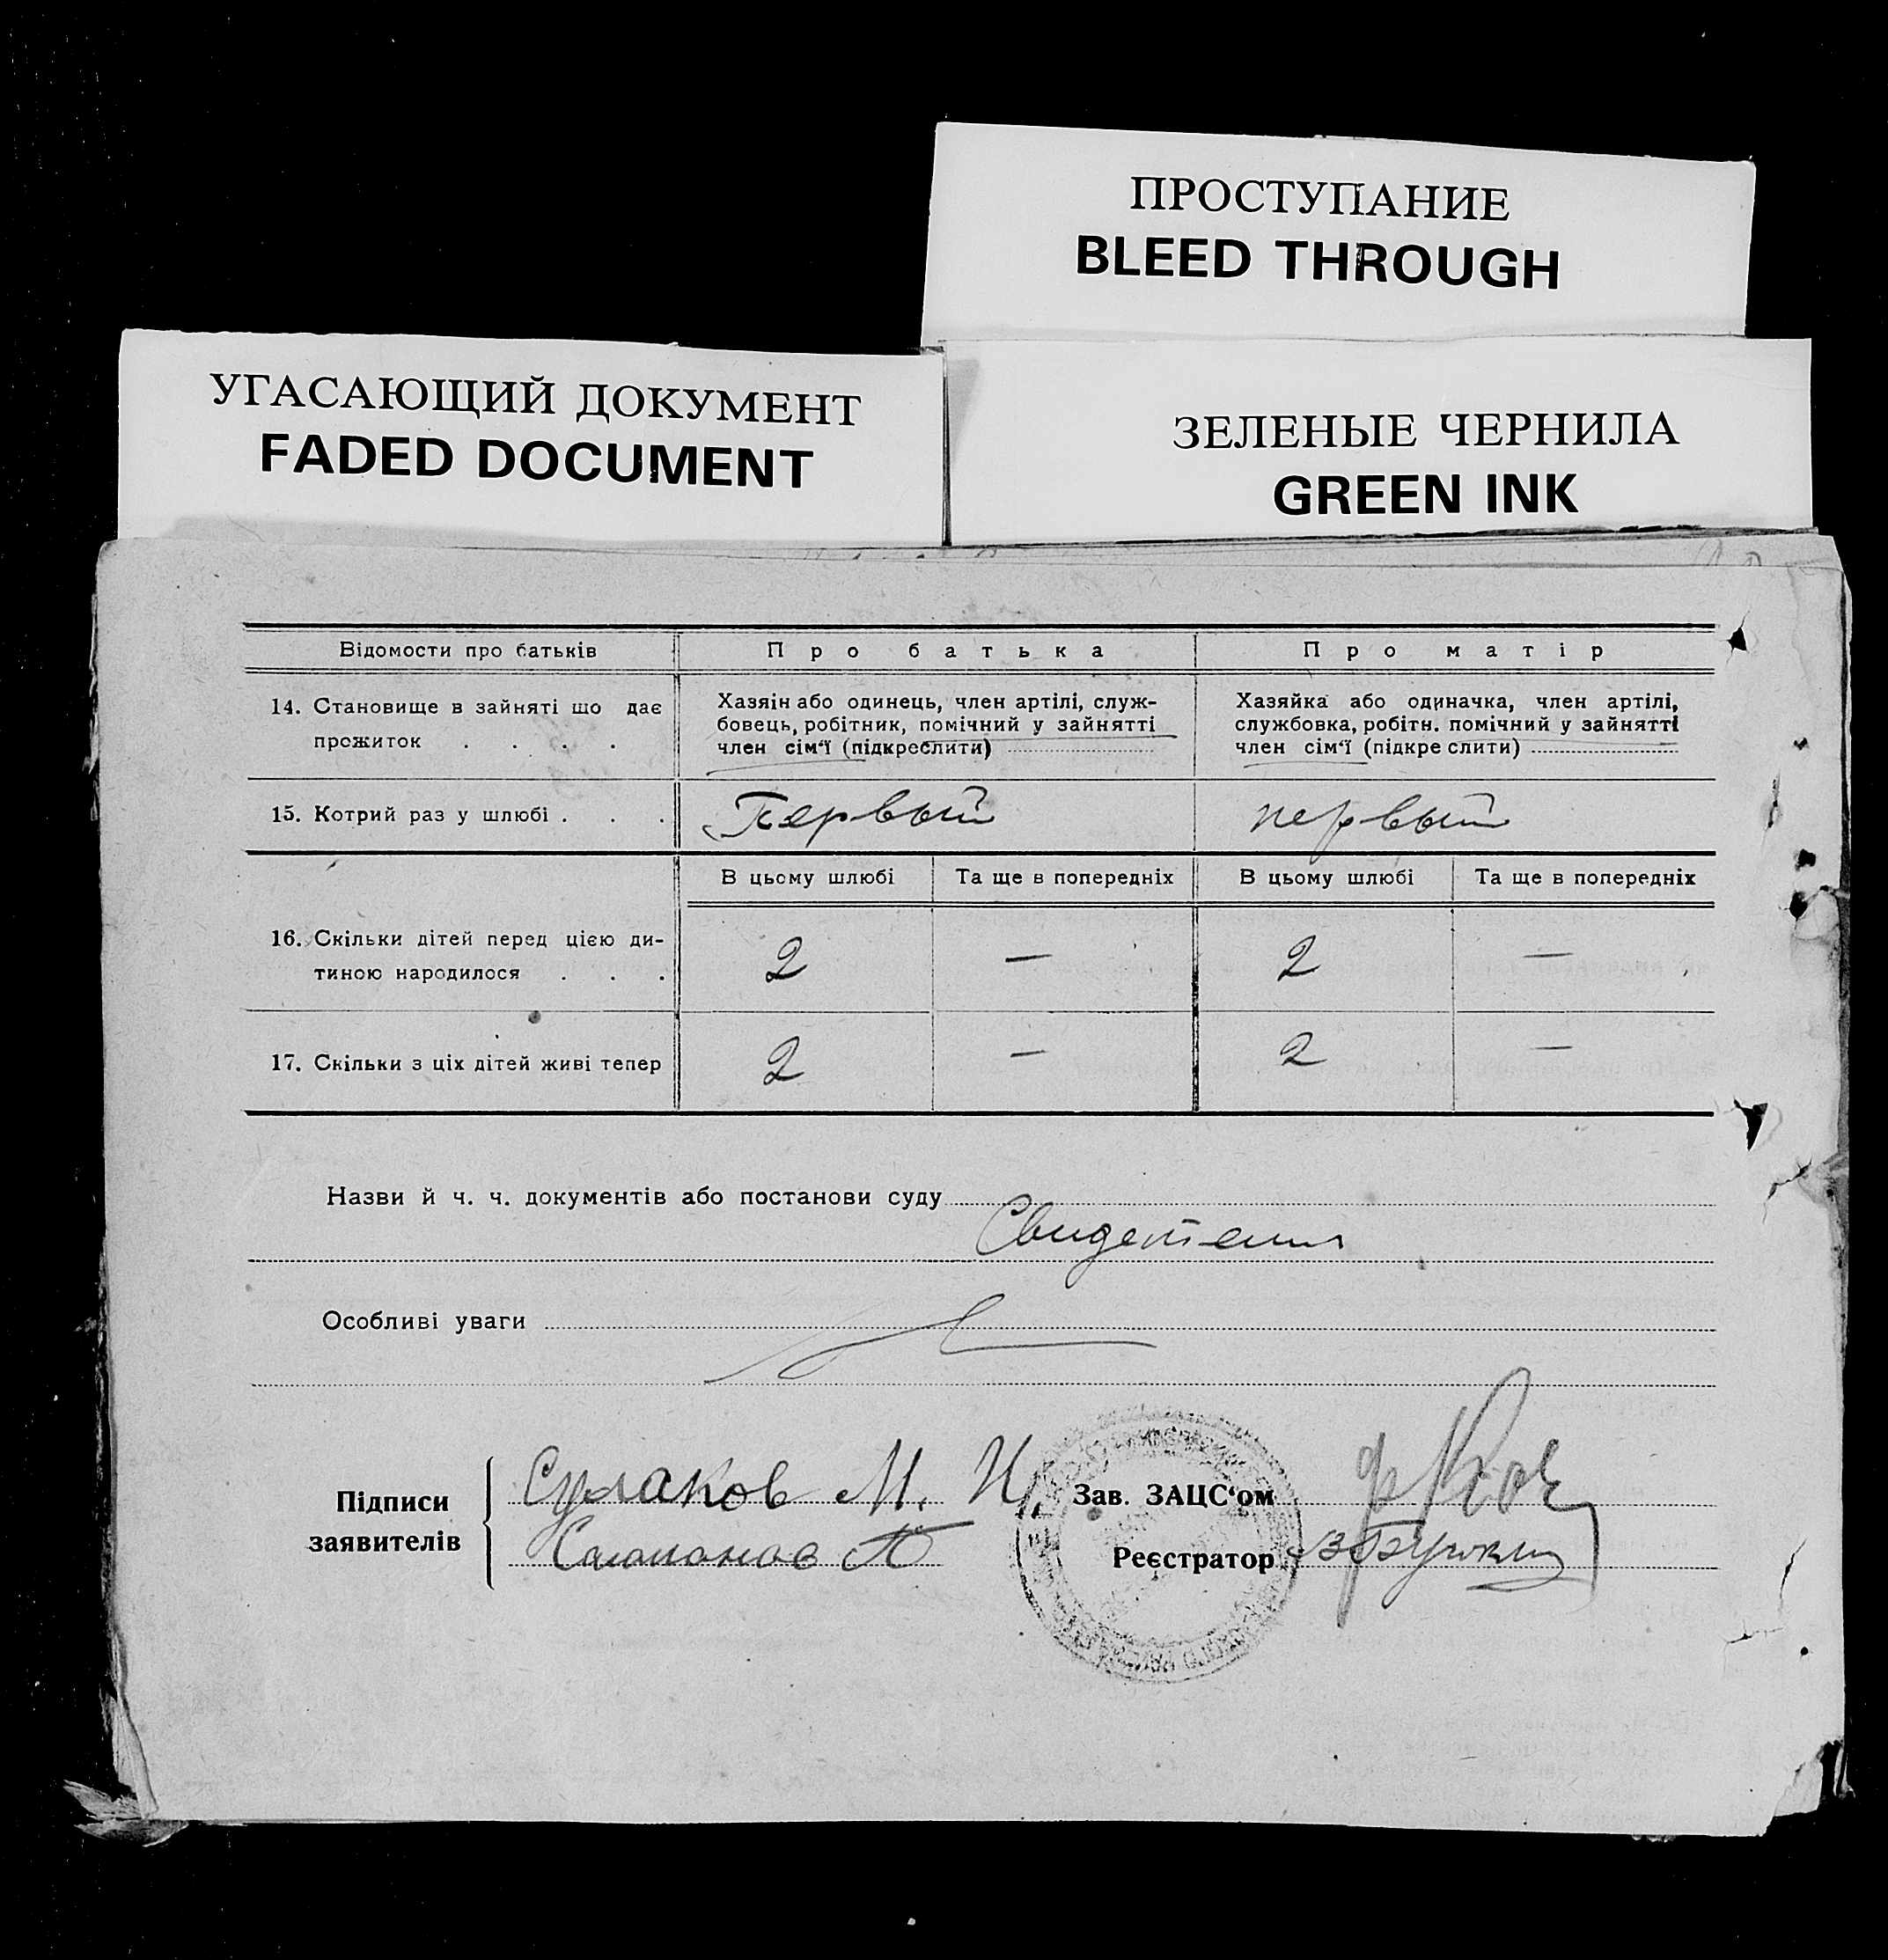 ПРОСТУПАНИЕ
BLEED THROUGH
УГАСАЮЩИЙ ДОКУМЕНТ
FADED DOCUMENT
ЗЕЛЕНЫЕ ЧЕРНИЛА
GREEN INK
Відомости про батьків Про батька Про матір
14. Становище в зайняті що дає
прожиток . . . .
Хазяін або одинець, член артілі, служ-
бовець, робітник, помічний у зайнятті
член сім'ї (підкреслити)
Хазяйка або одиначка, член артілі,
службовка, робітн. помічний у зайнятті
член сім'ї (підкреслити)
15. Котрий раз у шлюбі . . . Первый первый
В цьому шлюбі Та ще в попередніх В цьому шлюбі Та ще в попередніх
16. Скільки дітей перед цією ди-
тиною народилося . . . 2 — 2 —
17. Скільки з ціх дітей живі тепер 2 — 2 —
Назви й ч. ч. документів або постанови суду
Особливі уваги
Підписи
заявителів
М. И.
Зав. ЗАЦС'ом
Реєстратор